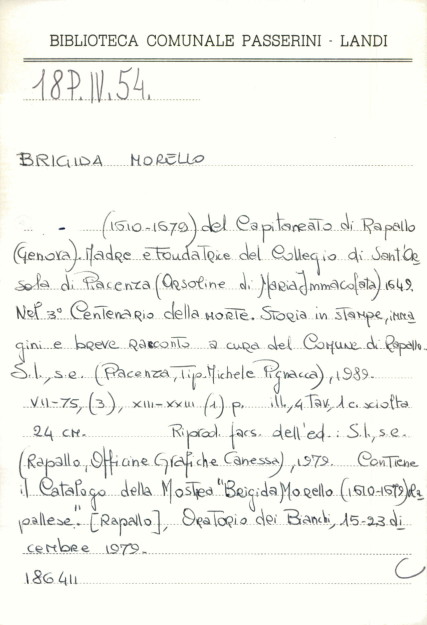 BIBLIOTECA COMUNALE PASSERINI - LANDI
18P.IV.54.
BRIGIDA MORELLO
- (1610-1679) del Capitaneato di Rapallo
(Genova). Madre e Fondatrice del Collegio di Sant'Or
sola di Piacenza (Orsoline di Maria Immacolata) 1649.
Nel 3° Centenario della morte. Storia in stampe, imma
gini e breve racconto a cura del Comune di Rapallo.
S.l., s.e. (Piacenza, Tip. Michele Pignacca), 1989.
VII-75, (3), XIII-XXIII (1) p. ill., 4 Tav., 1 c. sciolta
24 cm. Riprod. facs. dell'ed.: S.l., s.e.
(Rapallo, Officine Grafiche Canessa), 1979. Contiene
il Catalogo della Mostra "Brigida Morello (1610-1679) Ra
pallese". [Rapallo], Oratorio dei Bianchi, 15-23 di
cembre 1979.
186411 C